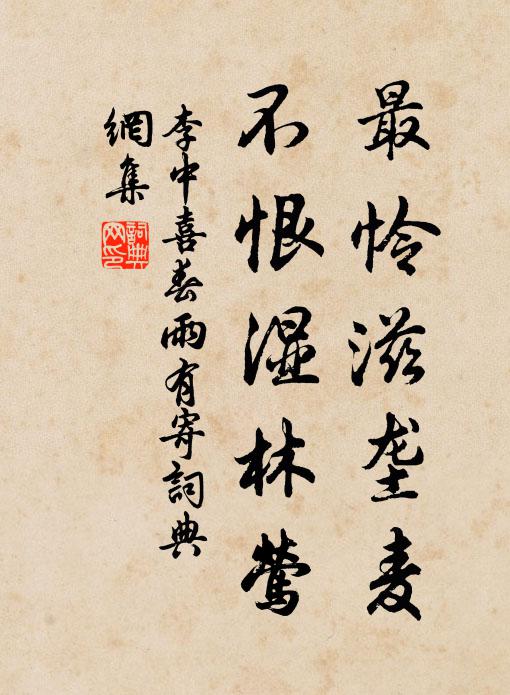 最怜滋垄麦
不恨湿林莺
李中喜春雨有寄詞典
網集
詞典网印